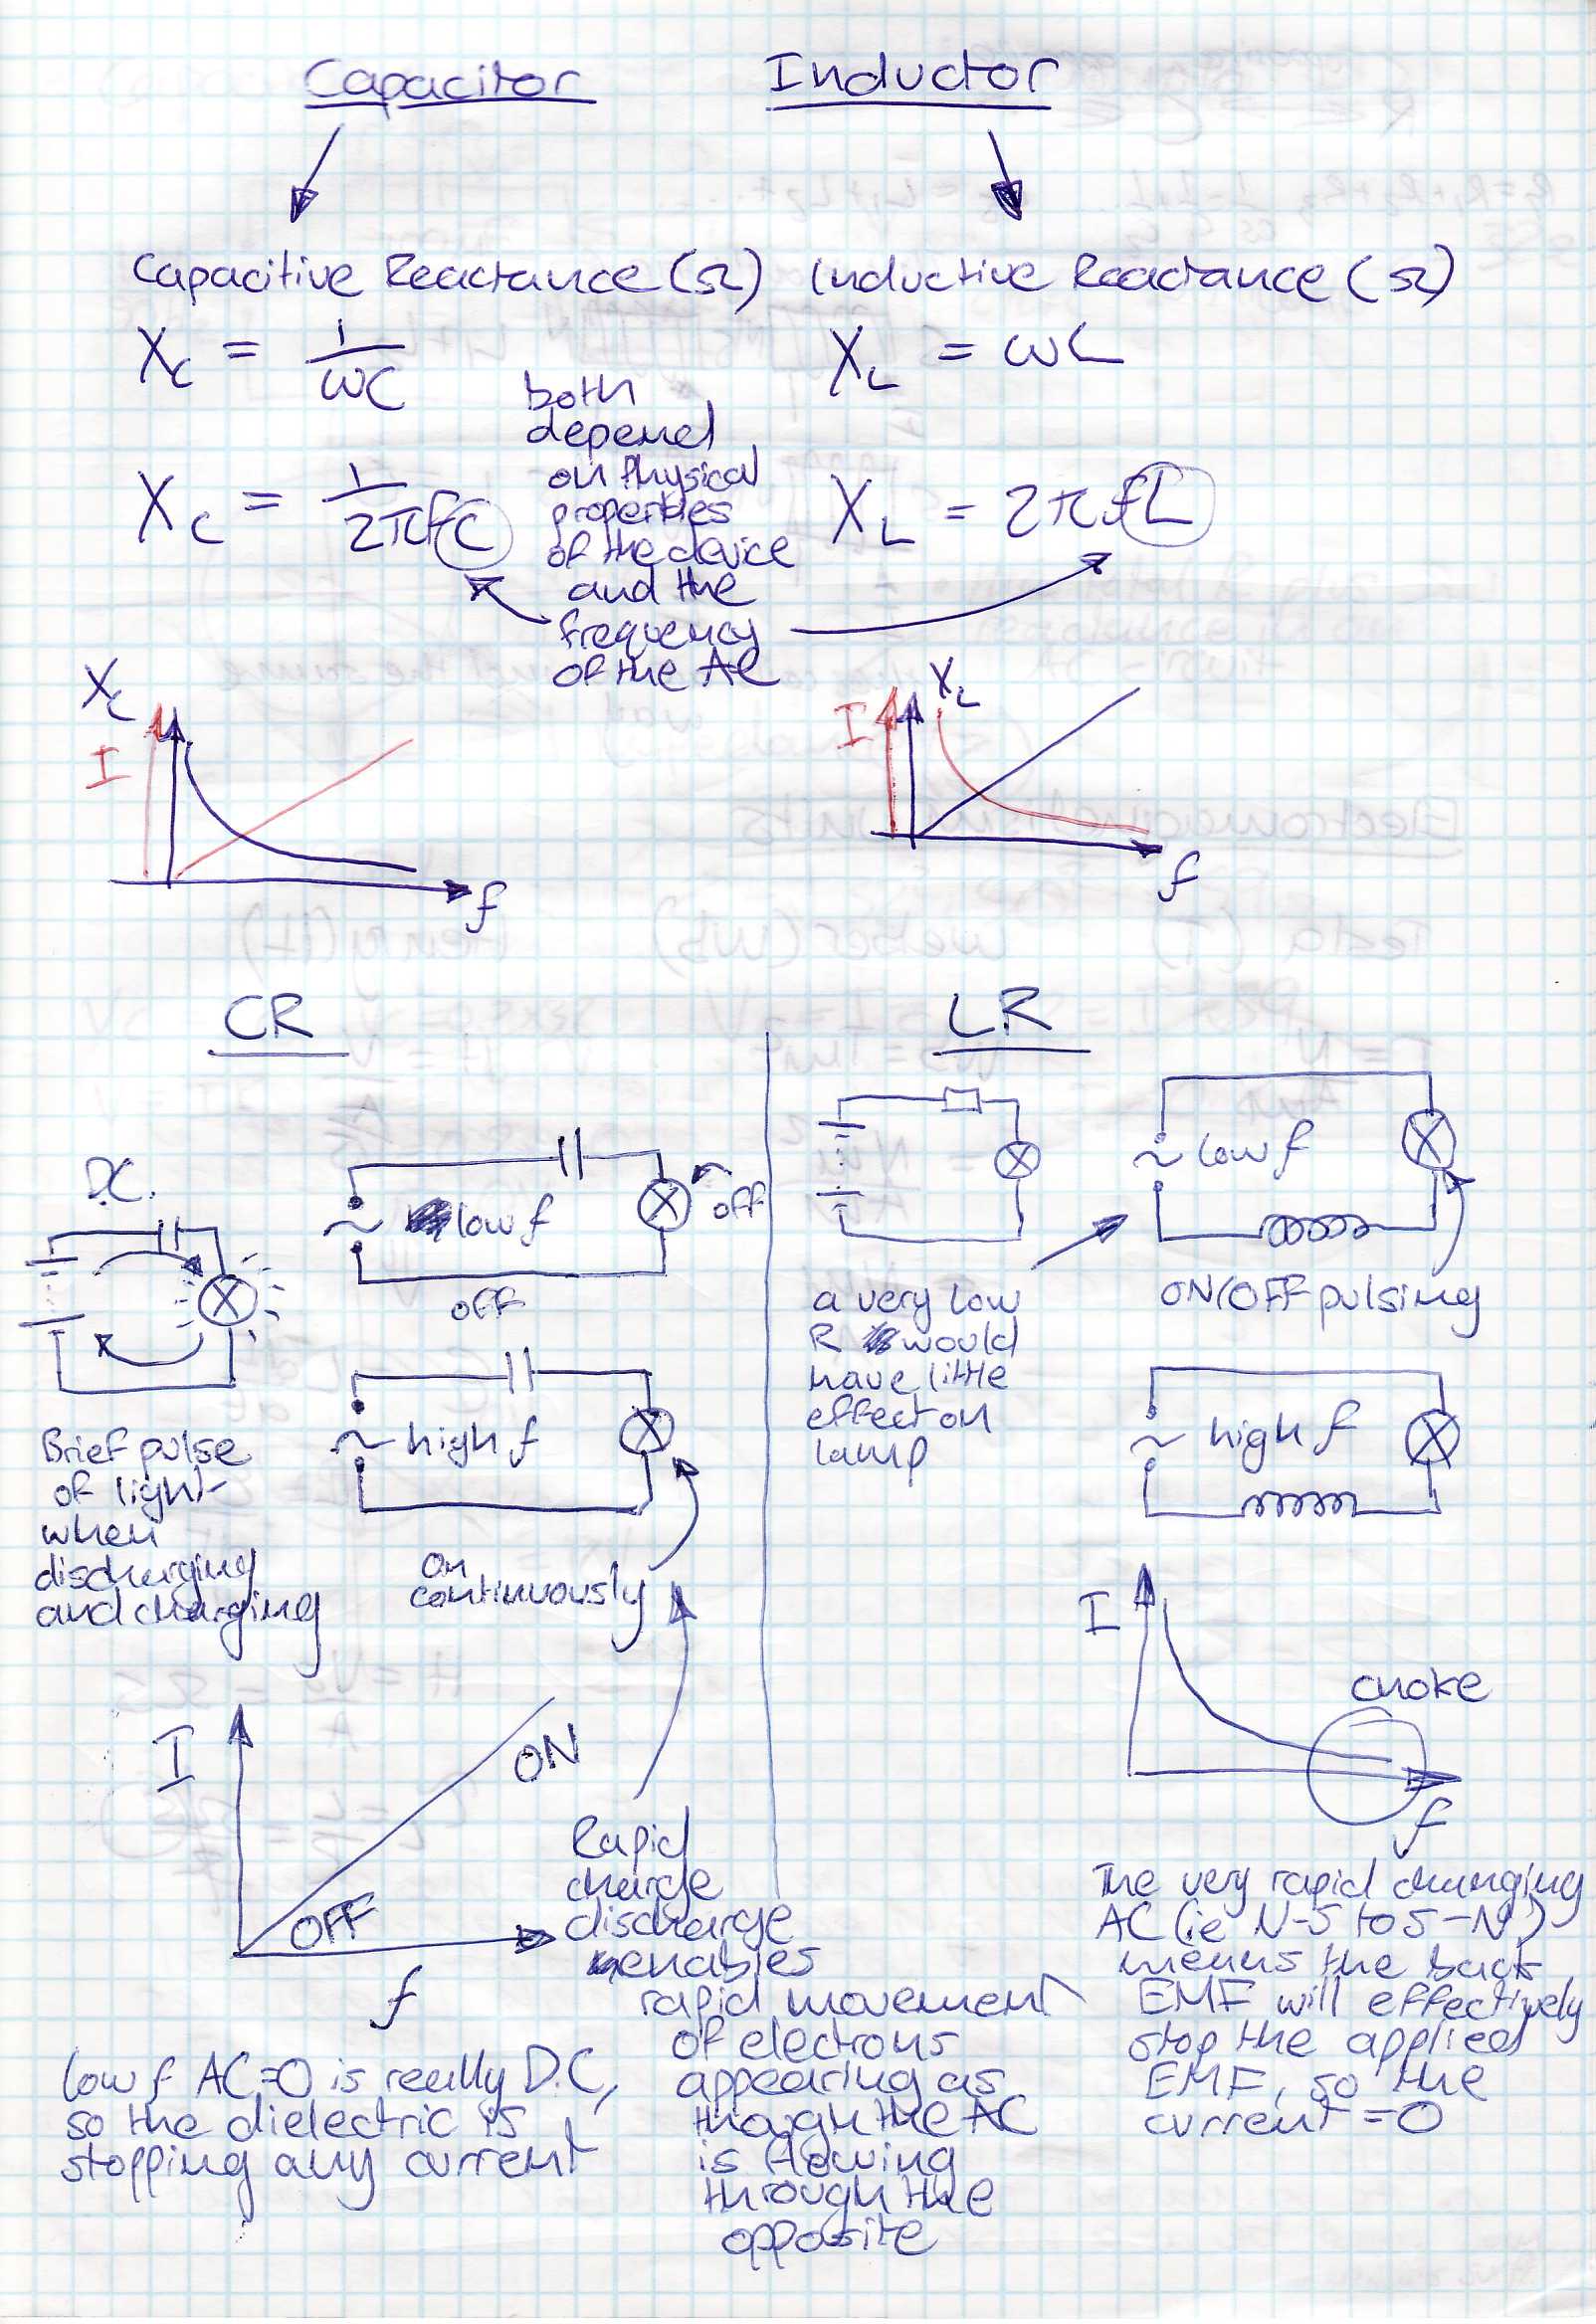 Capacitor Inductor
Capacitive Reactance (Ω) Inductive Reactance (Ω)
X_C = 1/ωC
X_L = ωL
X_C = 1/2πfC
both
depend
on Physical
properties
of the device
and the
frequency
of the AC
X_L = 2πfL
X_C
I
f
I X_L
f
CR
D.C.
Brief pulse
of light
when
discharging
and charging
low f
off
off
high f
on
continuously
I
ON
OFF
f
low f AC=0 is really D.C,
so the dielectric is
stopping any current
Rapid
charge
discharge
enables
rapid movement
of electrons
appearing as
though the AC
is flowing
through the
opposite
LR
a very low
R would
have little
effect on
lamp
low f
ON/OFF pulsing
high f
I
choke
f
The very rapid changing
AC (ie N-S to S-N)
means the back
EMF will effectively
stop the applied
EMF, so the
current = 0